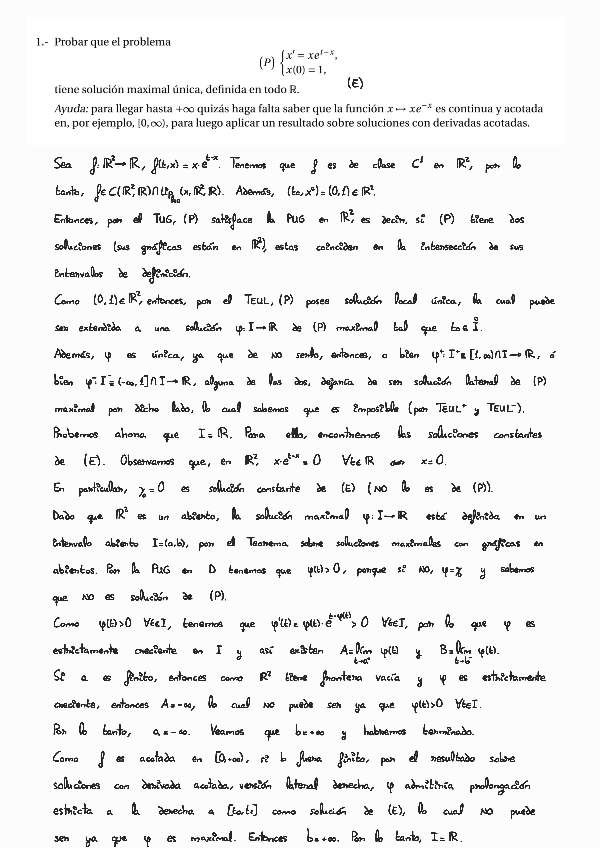 1.- Probar que el problema
(P) { x' = xe^{t−x},
x(0) = 1,
tiene solución maximal única, definida en todo ℝ. (E)
Ayuda: para llegar hasta +∞ quizás haga falta saber que la función x ↦ xe^{−x} es continua y acotada
en, por ejemplo, [0,∞), para luego aplicar un resultado sobre soluciones con derivadas acotadas.
Sea f: ℝ²→ℝ, f(t,x) = x·e^{t-x}. Tenemos que f es de clase C¹ en ℝ², por lo
tanto, f∈C(ℝ²,ℝ)∩Lip_{loc}(x,ℝ²,ℝ). Además, (t₀,x⁰) = (0,1)∈ℝ².
Entonces, por el TUG, (P) satisface la PUG en ℝ², es decir, si (P) tiene dos
soluciones (sus gráficas están en ℝ²), estas coinciden en la intersección de sus
intervalos de definición.
Como (0,1)∈ℝ², entonces, por el TEUL, (P) posee solución local única, la cual puede
ser extendida a una solución φ: I→ℝ de (P) maximal tal que t₀∈I̊.
Además, φ es única, ya que de no serlo, entonces, o bien φ⁺: I⁺≡[1,∞)∩I→ℝ, ó
bien φ⁻: I⁻≡(-∞,1]∩I→ℝ, alguna de las dos, dejaría de ser solución lateral de (P)
maximal por dicho lado, lo cual sabemos que es imposible (por TEUL⁺ y TEUL⁻).
Probemos ahora que I=ℝ. Para ello, encontremos las soluciones constantes
de (E). Observamos que, en ℝ², x·e^{t-x} = 0 ∀t∈ℝ x=0.
En particular, = 0 es solución constante de (E) (NO lo es de (P)).
Dado que ℝ² es un abierto, la solución maximal φ: I→ℝ está definida en un
intervalo abierto I=(a,b), por el Teorema sobre soluciones maximales con gráficas en
abiertos. Por la PUG en D tenemos que φ(t)>0, porque si NO, φ= y sabemos
que NO es solución de (P).
Como φ(t)>0 ∀t∈I, tenemos que φ'(t) = φ(t)·e^{t-φ(t)} > 0 ∀t∈I, por lo que φ es
estrictamente creciente en I y así existen A=lím_{t→a⁺} φ(t) y B=lím_{t→b⁻} φ(t).
Si a es finito, entonces como ℝ² tiene frontera vacía y φ es estrictamente
creciente, entonces A=-∞, lo cual NO puede ser ya que φ(t)>0 ∀t∈I.
Por lo tanto, a=-∞. Veamos que b=+∞ y habremos terminado.
Como f es acotada en [0,+∞), si b fuera finito, por el resultado sobre
soluciones con derivada acotada, versión lateral derecha, φ admitiría prolongación
estricta a la derecha a [t₀,t₁] como solución de (E), lo cual NO puede
ser ya que φ es maximal. Entonces b=+∞. Por lo tanto, I=ℝ.